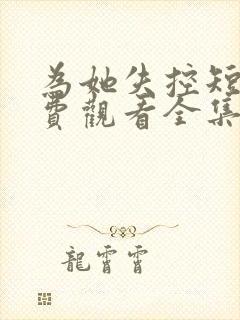 為她失控短
費觀看全集
龍霄霄